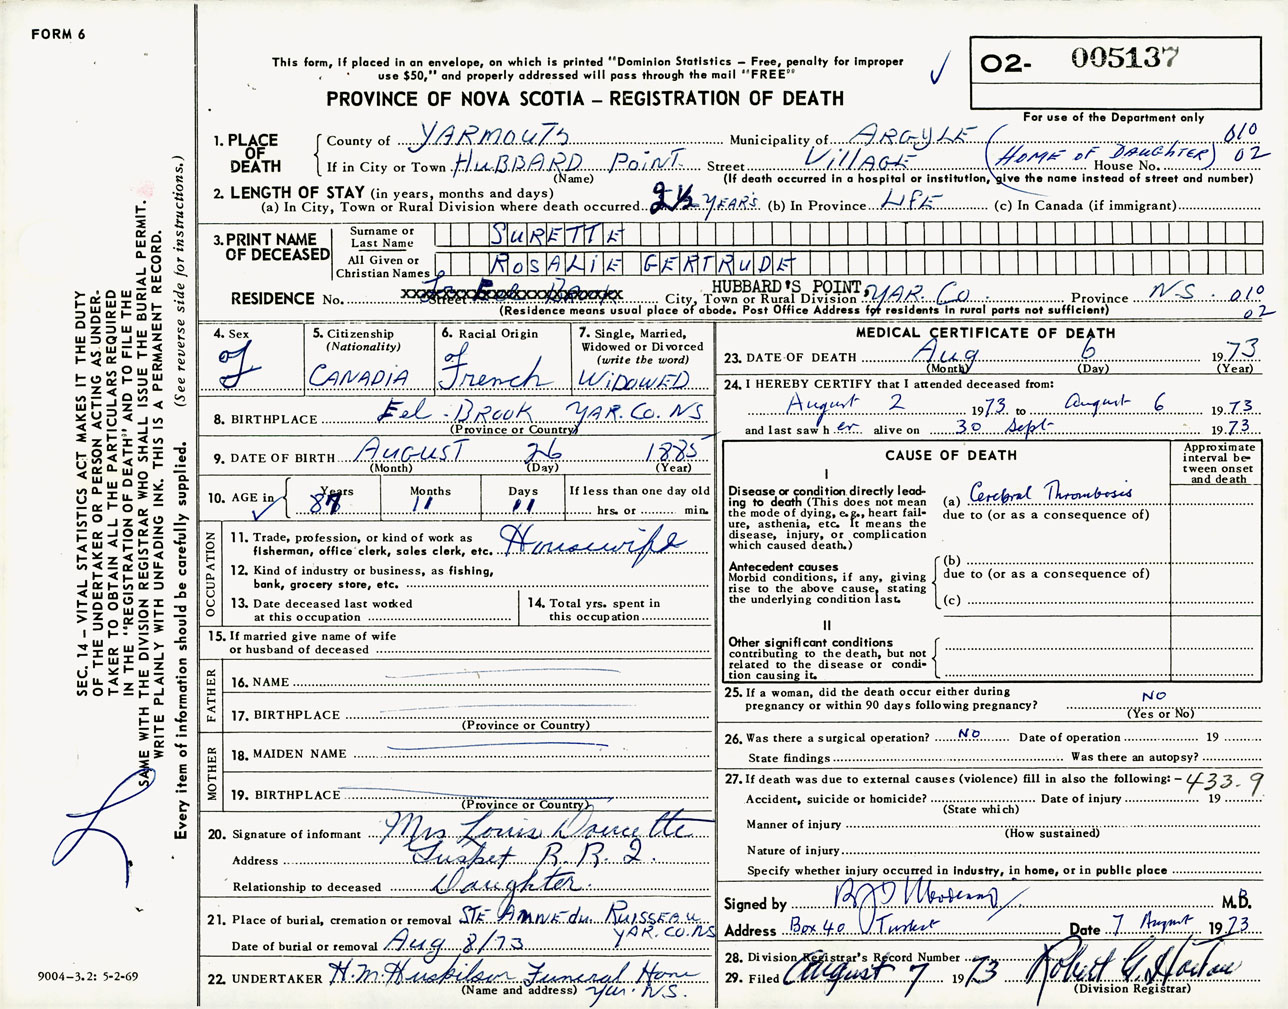 FORM 6
This form, if placed in an envelope, on which is printed "Dominion Statistics – Free, penalty for improper
use $50," and properly addressed will pass through the mail "FREE"
PROVINCE OF NOVA SCOTIA – REGISTRATION OF DEATH
02- 005137
For use of the Department only
1. PLACE OF DEATH
County of YARMOUTH Municipality of ARGYLE 010
If in City or Town HUBBARD POINT Street VILLAGE (HOME OF DAUGHTER) House No. 02
(Name) (If death occurred in a hospital or institution, give the name instead of street and number)
2. LENGTH OF STAY (in years, months and days)
(a) In City, Town or Rural Division where death occurred 2½ YEARS (b) In Province LIFE (c) In Canada (if immigrant)
3. PRINT NAME OF DECEASED
Surname or Last Name SURETTE
All Given or Christian Names ROSALIE GERTRUDE
RESIDENCE No. Street HUBBARD'S POINT, City, Town or Rural Division YAR. Co. Province NS. 010
(Residence means usual place of abode. Post Office Address for residents in rural parts not sufficient) 02
4. Sex F
5. Citizenship (Nationality) CANADIA
6. Racial Origin French
7. Single, Married, Widowed or Divorced (write the word) WIDOWED
8. BIRTHPLACE Eel-BROOK YAR. Co. NS
(Province or Country)
9. DATE OF BIRTH AUGUST 26 1885
(Month) (Day) (Year)
10. AGE in Years 87 Months 11 Days 11 If less than one day old
hrs. or min.
OCCUPATION
11. Trade, profession, or kind of work as
fisherman, office clerk, sales clerk, etc. Housewife
12. Kind of industry or business, as fishing,
bank, grocery store, etc.
13. Date deceased last worked
at this occupation
14. Total yrs. spent in
this occupation
15. If married give name of wife
or husband of deceased
FATHER
16. NAME
17. BIRTHPLACE
(Province or Country)
MOTHER
18. MAIDEN NAME
19. BIRTHPLACE
(Province or Country)
20. Signature of informant Mrs Louis Doucette
Address Tusket R.R.2.
Relationship to deceased Daughter.
21. Place of burial, cremation or removal STE ANNE du RUISSEAU
YAR. CO. NS
Date of burial or removal Aug 8/73
22. UNDERTAKER H.M. Huskilson Funeral Home
(Name and address) Yar. N.S.
MEDICAL CERTIFICATE OF DEATH
23. DATE OF DEATH Aug 6 1973
(Month) (Day) (Year)
24. I HEREBY CERTIFY that I attended deceased from:
August 2 1973 to August 6 1973
and last saw her alive on 30 Sept 1973
CAUSE OF DEATH
Approximate interval between onset and death
I
Disease or condition directly lead-
ing to death (This does not
mean the mode of dying, e.g., heart fail-
ure, asthenia, etc. It means the
disease, injury, or complication
which caused death.)
(a) Cerebral Thrombosis
due to (or as a consequence of)
Antecedent causes
Morbid conditions, if any, giving
rise to the above cause, stating
the underlying condition last.
(b)
due to (or as a consequence of)
(c)
II
Other significant conditions
contributing to the death, but not
related to the disease or condi-
tion causing it.
25. If a woman, did the death occur either during
pregnancy or within 90 days following pregnancy? NO
(Yes or No)
26. Was there a surgical operation? NO Date of operation 19
State findings Was there an autopsy?
27. If death was due to external causes (violence) fill in also the following: – 433.9
Accident, suicide or homicide? Date of injury 19
(State which)
Manner of injury
(How sustained)
Nature of injury
Specify whether injury occurred in industry, in home, or in public place
Signed by M.B.
Address Box 40 Tusket Date 7 August 1973
28. Division Registrar's Record Number
29. Filed August 7 1973 Robert G. Horton
(Division Registrar)
SEC. 14 – VITAL STATISTICS ACT MAKES IT THE DUTY
OF THE UNDERTAKER OR PERSON ACTING AS UNDER-
TAKER TO OBTAIN ALL THE PARTICULARS REQUIRED
IN THE "REGISTRATION OF DEATH" AND TO FILE THE
SAME WITH THE DIVISION REGISTRAR WHO SHALL ISSUE THE BURIAL PERMIT.
WRITE PLAINLY WITH UNFADING INK. THIS IS A PERMANENT RECORD.
Every item of information should be carefully supplied. (See reverse side for instructions.)
9004–3.2: 5-2-69